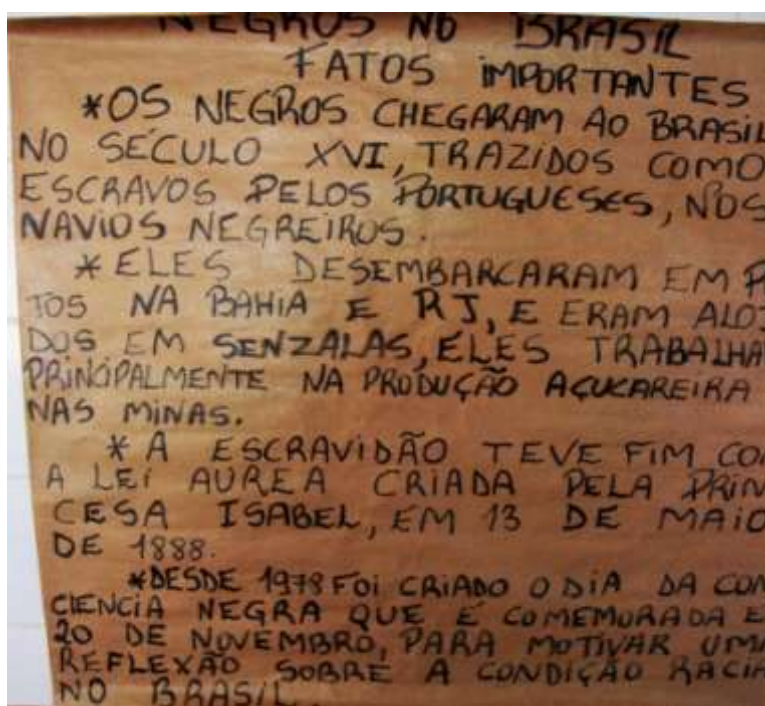 NEGROS NO BRASIL
FATOS IMPORTANTES
*OS NEGROS CHEGARAM AO BRASIL
NO SÉCULO XVI, TRAZIDOS COMO
ESCRAVOS PELOS PORTUGUESES, NOS
NAVIOS NEGREIROS.
*ELES DESEMBARCARAM EM P
TOS NA BAHIA E RJ, E ERAM ALOJ
DOS EM SENZALAS, ELES TRABALHA
PRINCIPALMENTE NA PRODUÇÃO AÇUCAREIRA
NAS MINAS.
*A ESCRAVIDÃO TEVE FIM CO
A LEI AUREA CRIADA PELA PRIN
CESA ISABEL, EM 13 DE MAIO
DE 1888.
*DESDE 1978 FOI CRIADO O DIA DA CON
CIENCIA NEGRA QUE É COMEMORADA E
20 DE NOVEMBRO, PARA MOTIVAR UMA
REFLEXÃO SOBRE A CONDIÇÃO RACIA
NO BRASIL.